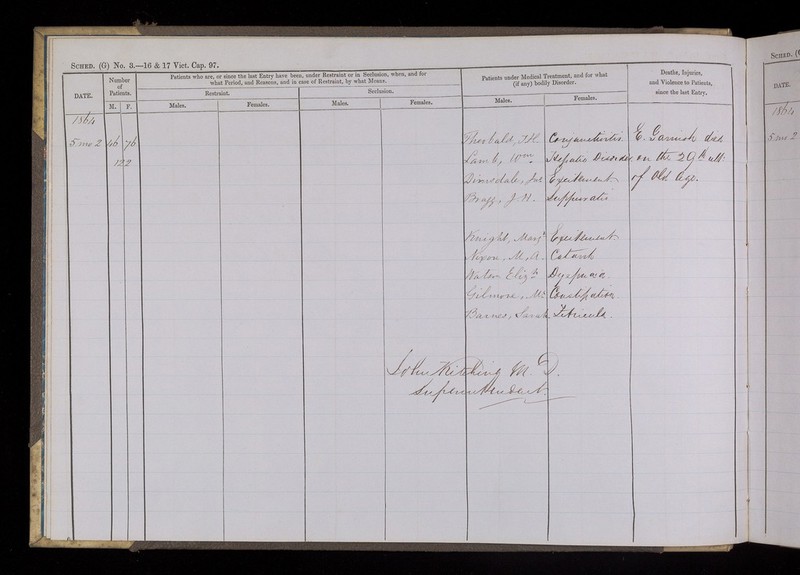 SCHED. (G) No. 3.—16 & 17 Vict. Cap. 97.
DATE.
Number of Patients.
M. F.
Patients who are, or since the last Entry have been, under Restraint or in Seclusion, when, and for
what Period, and Reasons, and in case of Restraint, by what Means.
Restraint.
Seclusion.
Males. Females. Males. Females.
Patients under Medical Treatment, and for what
(if any) bodily Disorder.
Males. Females.
Deaths, Injuries,
and Violence to Patients,
since the last Entry.
1864
5 mo 2 46 76
122
Theobald, J.H. Conjunctivitis
Lamb, Wm Hepatic Disorder
Dimsdale, Jos Excitement
Bragg, J.H. Suppuration
Knight, Marg.t Excitement
Nixon, M.A. Catarrh
Water Eliz.th Dyspnoea
Gilmore, M. Constipation
Barnes, Sarah Febricula
E. Garnish died
on the 29th ult:
of Old age.
John Kitching M.D.
Superintendent.
SCHED. (G
DATE.
1864
5 mo 2